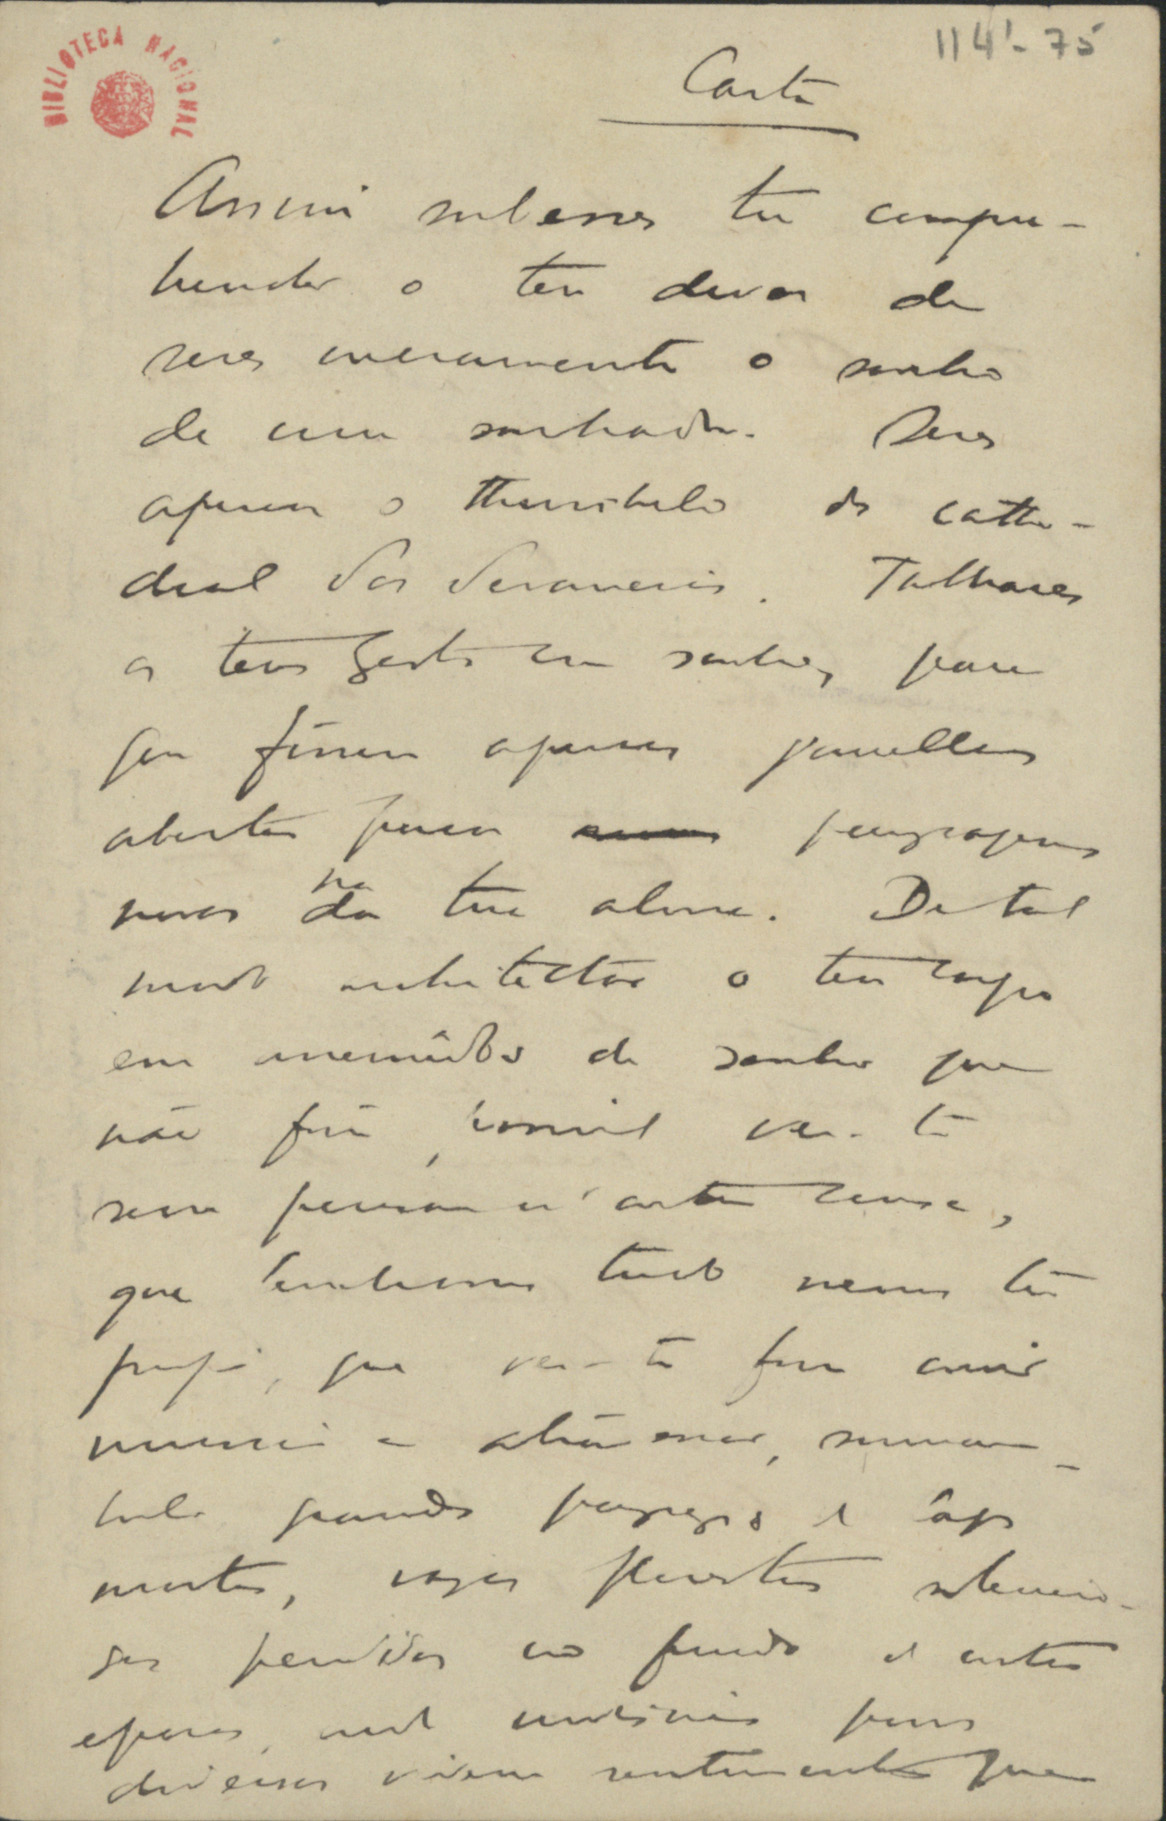 BIBLIOTECA NACIONAL
114¹-75
Carta
Assim soubesses tu compre-
hender o teu dever de
seres meramente o sonho
de um sonhador. Seres
apenas o thuribulo da cathe-
dral dos devaneios. Talhares
os teus gestos como sonhos, para
que fossem apenas janellas
abertas para paysagens
novas da na tua alma. De tal
modo architectar o teu corpo
em arremedos de sonho que
não fosse possivel ver-te
sem pensar n'outra cousa,
que lembrasses tudo menos tu
propria, que ver-te fosse ouvir
musica e atravessar, somnam-
bulo, grandes paysagens de lagos
mortos, vagas florestas silencio-
sas perdidas ao fundo d'outras
epocas, onde invisiveis pares
diversos vivem sentimentos que